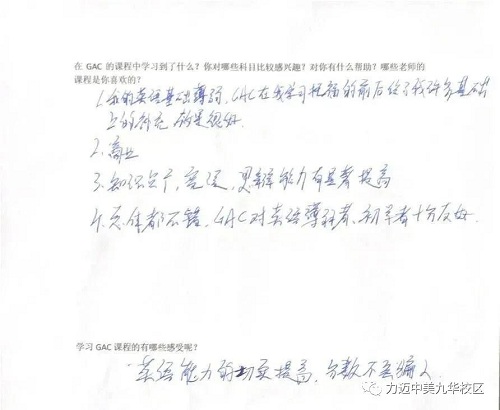 在 GAC 的课程中学习到了什么？你对哪些科目比较感兴趣？对你有什么帮助？哪些老师的
课程是你喜欢的？
1.我的英语基础薄弱，GAC在我学习托福的前后给了我许多基础
上的补充 都是很好.
2.商业
3.知识点广，宽泛，思维能力有显著提高
4.总体都不错，GAC对英语薄弱者、初学者十分友好.
学习 GAC 课程的有哪些感受呢？
英语能力的提高，分数不会骗人
力迈中美九华校区